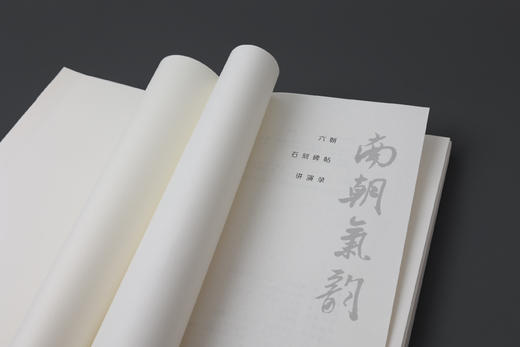 南朝氣韵
六朝
石刻碑帖
讲演录